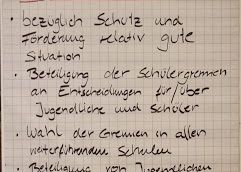 • bezüglich Schutz und
Förderung relativ gute
Situation
• Beteiligung der Schülergremien
an Entscheidungen für/über
Jugendliche und Schüler
• Wahl der Gremien in allen
weiterführenden Schulen
• Beteiligung von Jugendlichen